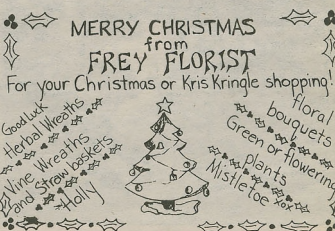 MERRY CHRISTMAS
from
FREY FLORIST
For your Christmas or Kris Kringle shopping!
Good Luck
Herbal Wreaths
Vine Wreaths
and Straw baskets
Holly
floral
bouquets
Green or flowering
plants
Mistletoe xox